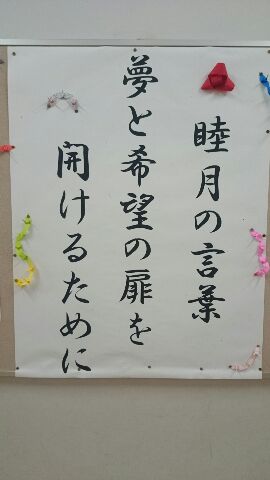 睦月の言葉
夢と希望の扉を
開けるために